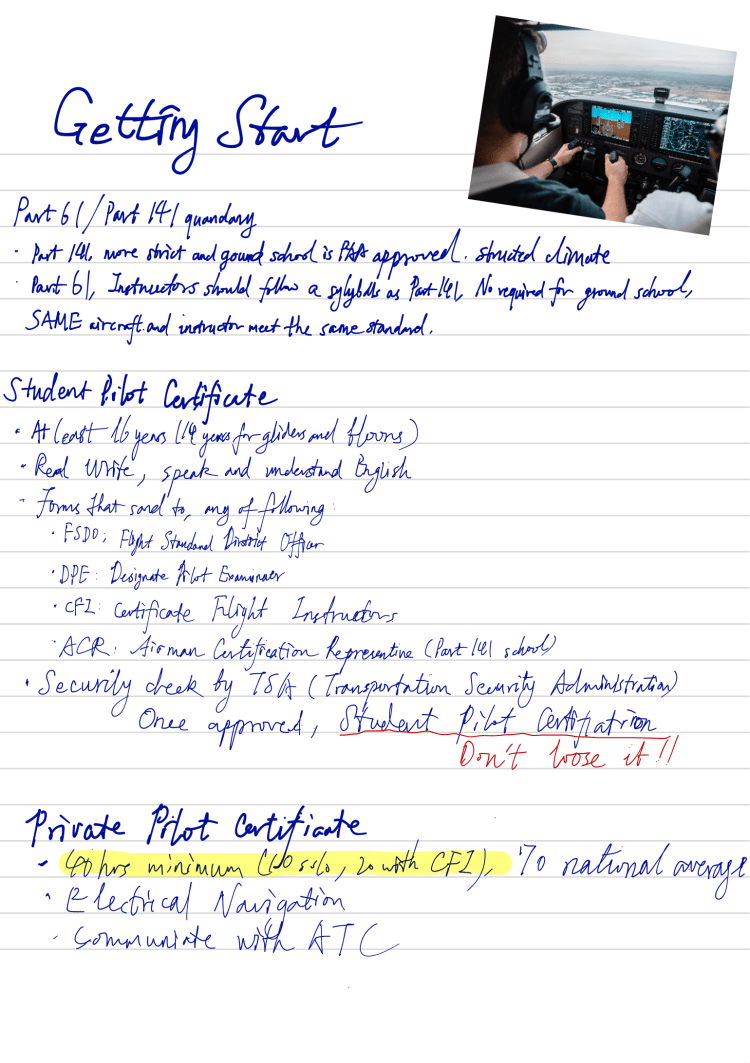 Getting Start
Part 61/Part 141 quandary
· Part 141, more strict and gound school is FAA approved. structed climate
· Part 61, Instructors should follow a sylyblls as Part 141, No required for ground school,
SAME aircraft and instructor meet the same standard.
Student Pilot Certificate
· At least 16 years (14 years for gliders and)
· Read Write, speak and understand English
· Forms that send to, any of following:
· FSDO: Flight Standard District Officer
· DPE: Designate Pilot Examinaer
· CFI: Certificate Flight Instructors
· ACR: Airman Certification Representive (Part 141 school)
· Security check by TSA (Transportation Security Administration)
Once approved, Student Pilot Certifiation
Don't loose it!!
Private Pilot Certificate
- 40 hrs minimum (, 20 with CFI), 70 national average
· Electrical Navigation
· Communiate with ATC